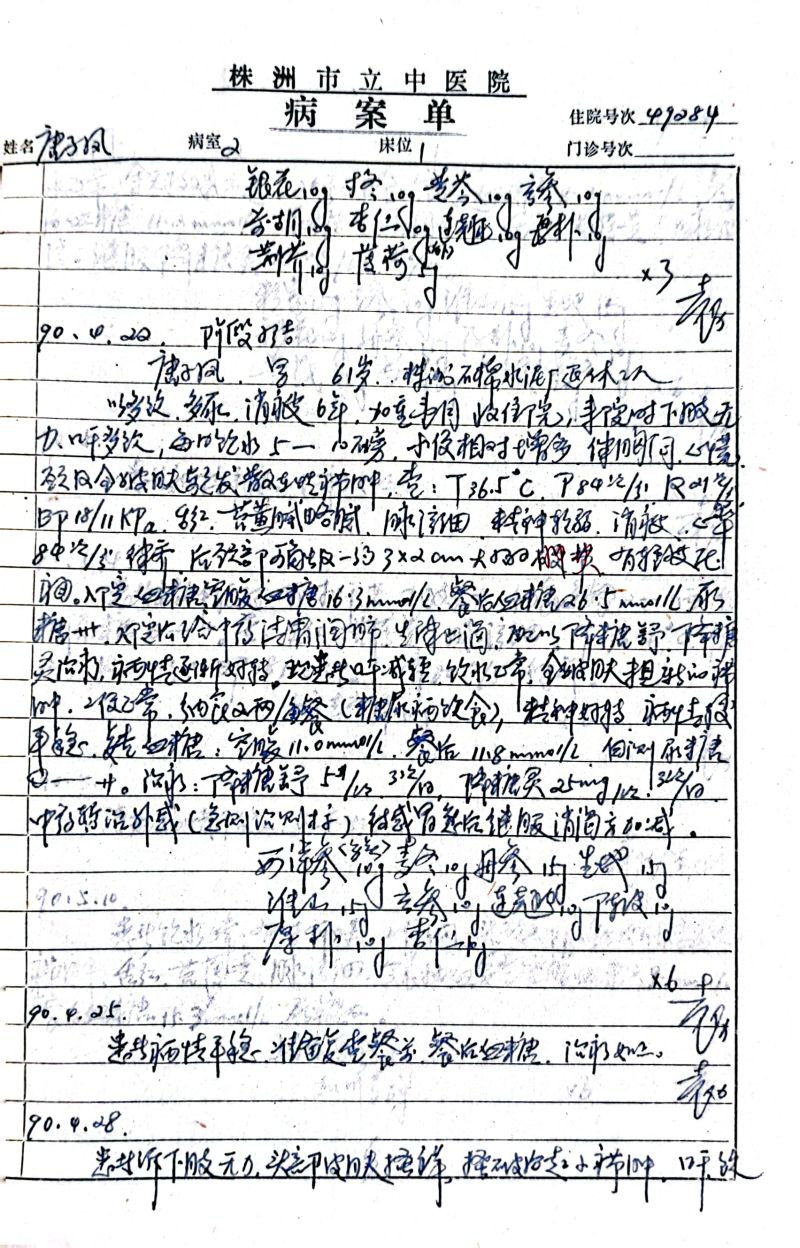 株洲市立中医院
病案单
住院号次 49284
姓名 唐子凤 病室 2 床位 1 门诊号次
银花10g 才冬10g 黄芩10g 玄参10g
前胡10g 杏仁10g 连翘10g 厚朴10g
荆芥10g 薄荷5g
×3
90.4.22. 阶段小结
唐子凤、男、61岁、株洲石棉水泥厂退休工人
以多饮、多尿、消瘦6年,加重 月收住院,来院时下肢无
力、口干多饮,每日饮水5—10磅,小便相对增多 伴胸闷、心慌
颈及全身皮肤 发散在性疖肿,查:T36.5℃ P84次/分 R21次/分
BP 18/11KPa 舌红、苔黄腻略腻、脉 细 精神软弱、消瘦、心率
84次/分 律齐,后颈部 有一约3×2cm大的 硬块 有轻
。入院血糖:空腹血糖16.3mmol/L 餐后血糖26.5mmol/L 尿
糖卅,入院后给中药清胃润肺、生津止渴,配以降糖舒、降糖
灵治疗,病情逐渐好转。现患者口干减轻,饮水正常,全身皮肤未见新的疖
肿,二便正常,纳食2两/餐(糖尿病饮食),精神好转,病情较
平稳、复查血糖:空腹11.0mmol/L、餐后11.8mmol/L 自测尿糖
—卄。治疗:降糖舒5片/次 3次/日,降糖灵25mg/次 3次/日
中药转治外感(急则治则标)待感冒愈后继服消渴方加减。
西洋参10g 麦冬10g 丹参15g 生地15g
淮山15g 玄参10g 连翘10g 陈皮10g
厚朴10g 杏仁10g
×6
90.4.25.
患者病情平稳,准备复查餐前、餐后血糖,治疗如上。
90.4.28.
患者诉下肢无力,头部皮肤搔痒,搔破后起小疖肿,口干
90.5.10.